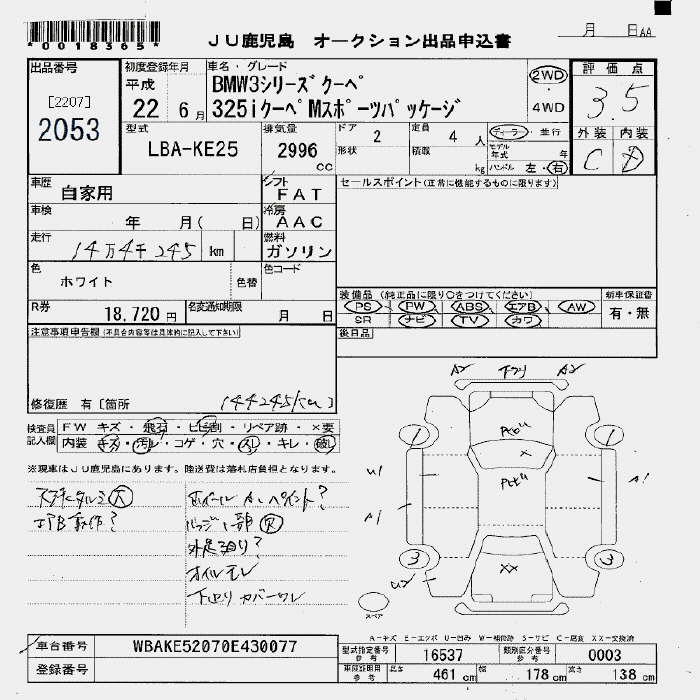 *0018365*
JU鹿児島 オークション出品申込書
月 日AA
出品番号
[2207]
2053
初度登録年月
平成
22 6月
車名・グレード
BMW3シリーズクーペ
325iクーペMスポーツパッケージ
2WD
4WD
評価点
3.5
外装 内装
C D
型式
LBA-KE25
排気量
2996
cc
ドア 2
形状
定員 4 人
積載 kg
ディーラー・並行
モデル年式 年
ハンドル 左・右
車歴
自家用
シフト
FAT
セールスポイント(正常に機能するものに限ります)
車検
年 月( 日)
冷房
AAC
走行
14万4千245 km
燃料
ガソリン
色
ホワイト
色替
色コード
R券
18,720円
名変通知期限
月 日
装備品(純正品に限り○をつけてください)
PS PW ABS エアB AW
SR ナビ TV カワ
新車保証書
有・無
後日品
注意事項申告欄(不具合内容等は具体的に記入して下さい)
修復歴 有〔箇所
144245km
検査員記入欄
FW キズ・飛石・ヒビ割・リペア跡・×要
内装 キズ・汚レ・コゲ・穴・スレ・キレ・破レ
※現車はJU鹿児島にあります。陸送費は落札店負担となります。
エアB動作?
ホイール ペイント?
外足廻り?
オイルモレ
下廻りカバーワレ
A2 A2
1 1
×
U1 A1
A1
3 3
XX
U2
スペア
A-キズ E-エクボ U-凹み W-補修跡 S-サビ C-腐食 XX-交換済
車台番号
WBAKE52070E430077
登録番号
型式指定番号 参考
16537
類別区分番号 参考
0003
車庫証明用 参考
長さ 461 cm
幅 178 cm
高さ 138 cm